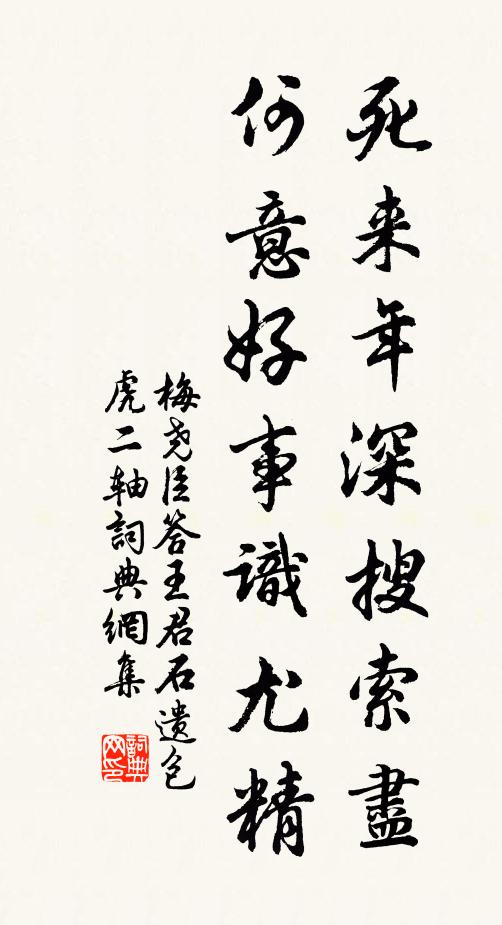 死来年深搜索盡
何意好事識尤精
梅尧臣答王君石遺包
虎二轴詞典網集
詞典网印